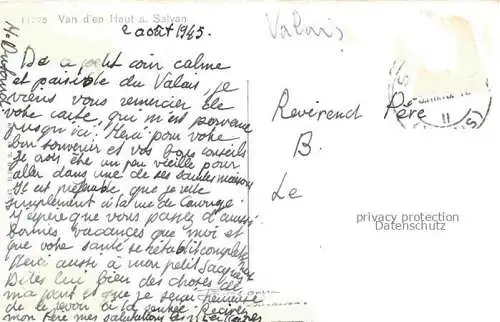 11225 Van d'en Haut a. Salvan
2 août 1945.
Valais
De ce petit coin calme
et paisible du Valais, je
viens vous remercier de
votre carte, qui m'est parvenue
jusqu'ici. Merci pour votre
bon souvenir et vos bons conseils
Je dois être un peu vieille pour
aller dans une de ses saintes maisons
Il est préférable, que je reste
simplement à la rue de Carouge.
J'espère que vous passez d'aussi
bonnes vacances que moi et
que votre santé se rétablit complète
Merci aussi à mon petit Jacques
Dites lui bien des choses de
ma part et que je serai heureuse
de le revoir à la rentrée. Recevez
mon Père mes salutations les meilleures
Révérend Père
B.
Le
privacy protection
Datenschutz